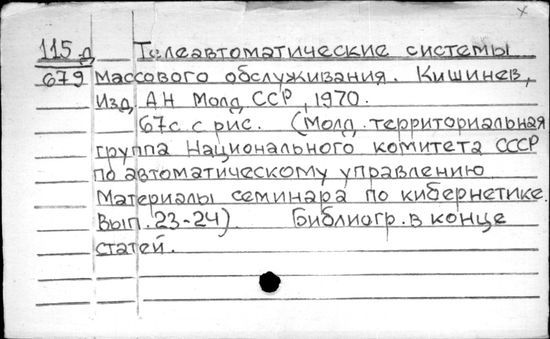 115-д Телеавтоматические системы
679 массового обслуживания. Кишинев,
Изд. АН Молд ССР, 1970.
67с с рис. (Молд. территориальная
группа Национального комитета СССР
по автоматическому управлению
Материалы семинара по кибернетике.
Вып. 23-24). Библиогр. в конце
статей.